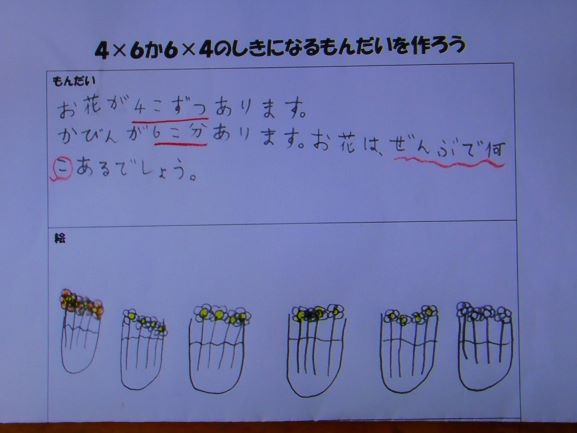 4×6か6×4のしきになるもんだいを作ろう
もんだい
お花が4こずつあります。
かびんが6こ分あります。お花は、ぜんぶで何
こあるでしょう。
絵